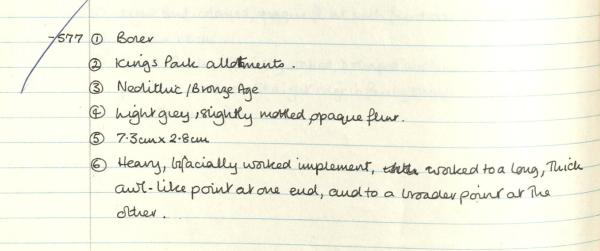 -577 ① Borer
② Kings Park allotments.
③ Neolithic/Bronze Age
④ Light grey, slightly mottled, opaque flint.
⑤ 7.3cm x 2.8cm
⑥ Heavy, bifacially worked implement, worked to a long, thick
awl-like point at one end, and to a broader point at the
other.